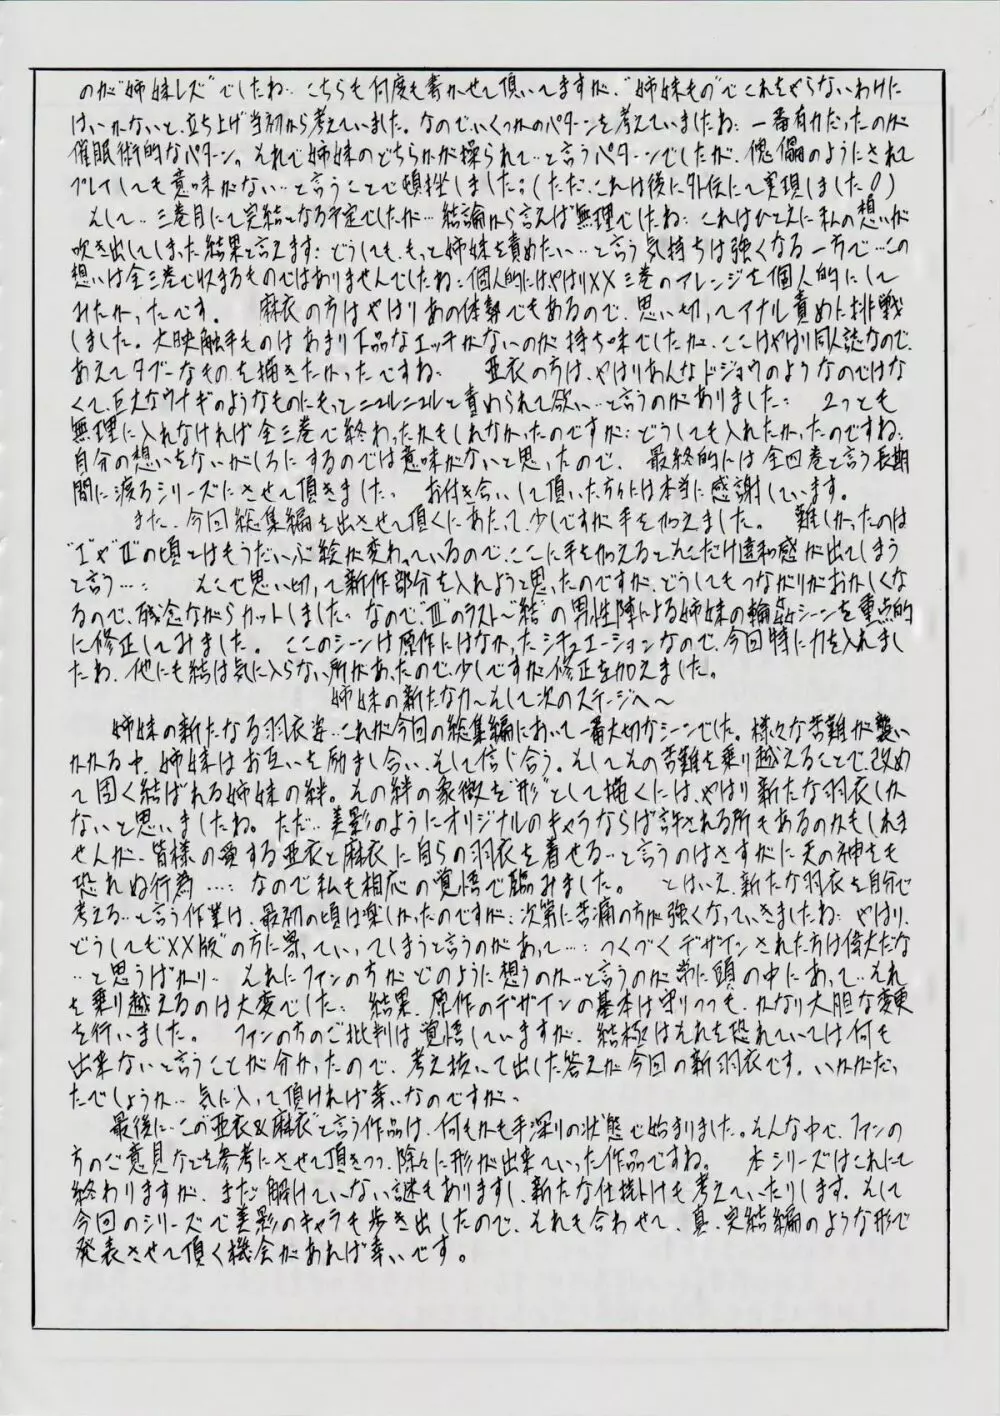 のが“姉妹レズ”でしたね… こちらも何度も書かせて頂いてますが、“姉妹もの”でこれをやらないわけに
はいかないと、立ち上げ当初から考えていました。なので、いくつかのパターンを考えていましたね… 一番有力だったのが
催眠術的なパターン。それで姉妹のどちらかが操られて…と言うパターンでしたが、傀儡のようにされて
プレイしても意味がない…と言うことで頓挫しました…(ただ、これは後に外伝にて実現しました!)
そして…三巻目にて完結となる予定でしたが…結論から言えば無理でしたね… これはひとえに私の想いが
吹き出してしまった結果と言えます… どうしても、もっと姉妹を責めたい…と言う気持ちは強くなる一方で…この
想いは全三巻で収まるものではありませんでしたね… 個人的にはやはりXX三巻のアレンジを個人的にして
みたかったです。 麻衣の方はやはりあの体勢でもあるので、思い切ってアナル責めに挑戦
しました。大映触手ものはあまり下品なエッチがないのが持ち味でしたが、ここはやはり同人誌なので、
あえてタブーなものを描きたかったですね… 亜衣の方は、やはりあんなドジョウのようなのではな
くて、巨大なウナギのようなものにもっとニュルニュルと責められて欲い…と言うのがありました… 2つとも
無理に入れなければ全三巻で終わったかもしれなかったのですが… どうしても入れたかったのですね…
自分の想いをないがしろにするのでは意味がないと思ったので、最終的には全四巻と言う長期
間に渡るシリーズにさせて頂きました。 お付き合いして頂いた方々には本当に感謝しています。
また、今回総集編を出させて頂くにあたって、少しですが手を加えました。 難しかったのは
“I”や“II”の頃とはもうだいぶ絵が変わっているので、ここに手を加えるとそこだけ違和感が出てしまう
と言う…… そこで思い切って新作部分を入れようと思ったのですが、どうしてもつながりがおかしくな
るので、残念ながらカットしました… なので“IIIのラスト〜結”の男性陣による姉妹の輪姦シーンを重点的
に修正してみました。 ここのシーンは原作にはなかったシチュエーションなので、今回特に力を入れまし
たね、他にも結は気に入らない所があったので、少しですが修正を加えました。
姉妹の新たな力〜そして次のステージへ〜
姉妹の新たなる羽衣姿…これが今回の総集編において一番大切なシーンでした。様々な苦難が襲い
かかる中、姉妹はお互いを励まし合い、そして信じ合う。そしてその苦難を乗り越えることで、改め
て固く結ばれる姉妹の絆。その絆の象徴を“形”として描くには、やはり新たな羽衣しか
ないと思いましたね。ただ…美影のようにオリジナルのキャラならば許される所もあるのかもしれま
せんが、皆様の愛する亜衣と麻衣に自らの羽衣を着せる…と言うのはさすがに天の神をも
恐れぬ行為…… なので私も相応の覚悟で臨みました。 とはいえ、新たな羽衣を自分で
考える…と言う作業は、最初の頃は楽しかったのですが… 次第に苦痛の方が強くなっていきましたね… やはり、
どうしても“XX版”の方に寄っていってしまうと言うのがあって…… つくづくデザインされた方は偉大だな
…と思うばかり… それにファンの方がどのように想うのか…と言うのが常に頭の中にあって…それ
を乗り越えるのは大変でした… 結果、原作のデザインの基本は守りつつも、かなり大胆な変更
を行いました。 ファンの方のご批判は覚悟していますが、結極はそれを恐れていては何も
出来ないと言うことが分かったので、考え抜いて出した答えが今回の新羽衣です。いかがだっ
たでしょうか… 気に入って頂ければ幸いなのですが、
最後に…この“亜衣&麻衣”と言う作品は、何もかも手深りの状態で始まりました。そんな中で、ファンの
方のご意見などを参考にさせて頂きつつ、除々に形が出来ていった作品ですね。 本シリーズはこれにて
終わりますが、まだ解けていない謎もありますし、新たな仕掛けも考えていたりします。そして
今回のシリーズで美影のキャラも歩き出したので、それも合わせて、真・完結編のような形で
発表させて頂く機会があれば幸いです。